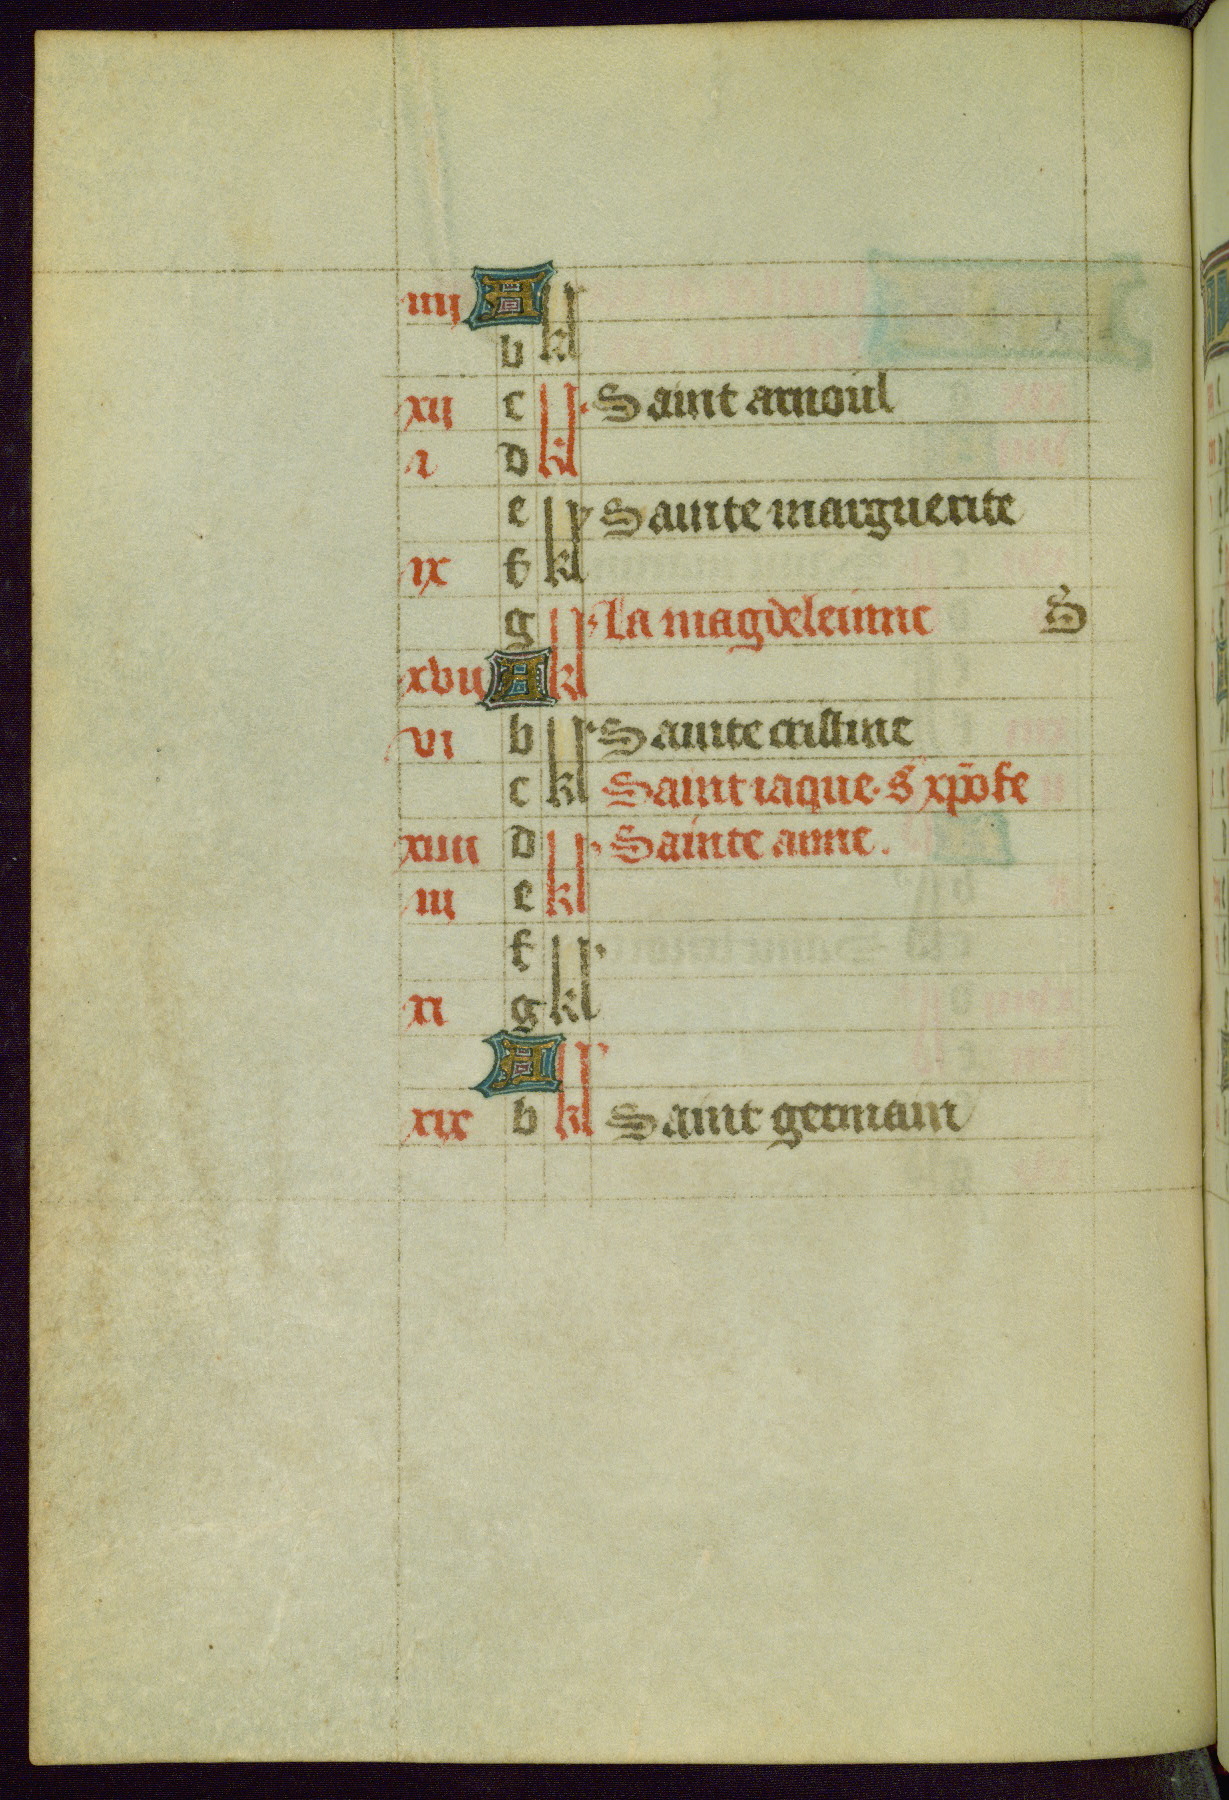 iiij A kl
b
xij c kl Saint arnoul
i d
e kl Sainte marguerite
ix f
g kl La magdeleinne S
xvij A
vi b kl Sainte cristine
c Saint iaque. s xpofe
xiiii d kl Sainte anne.
iij e
f kl
xi g
A kl
xix b Saint germain